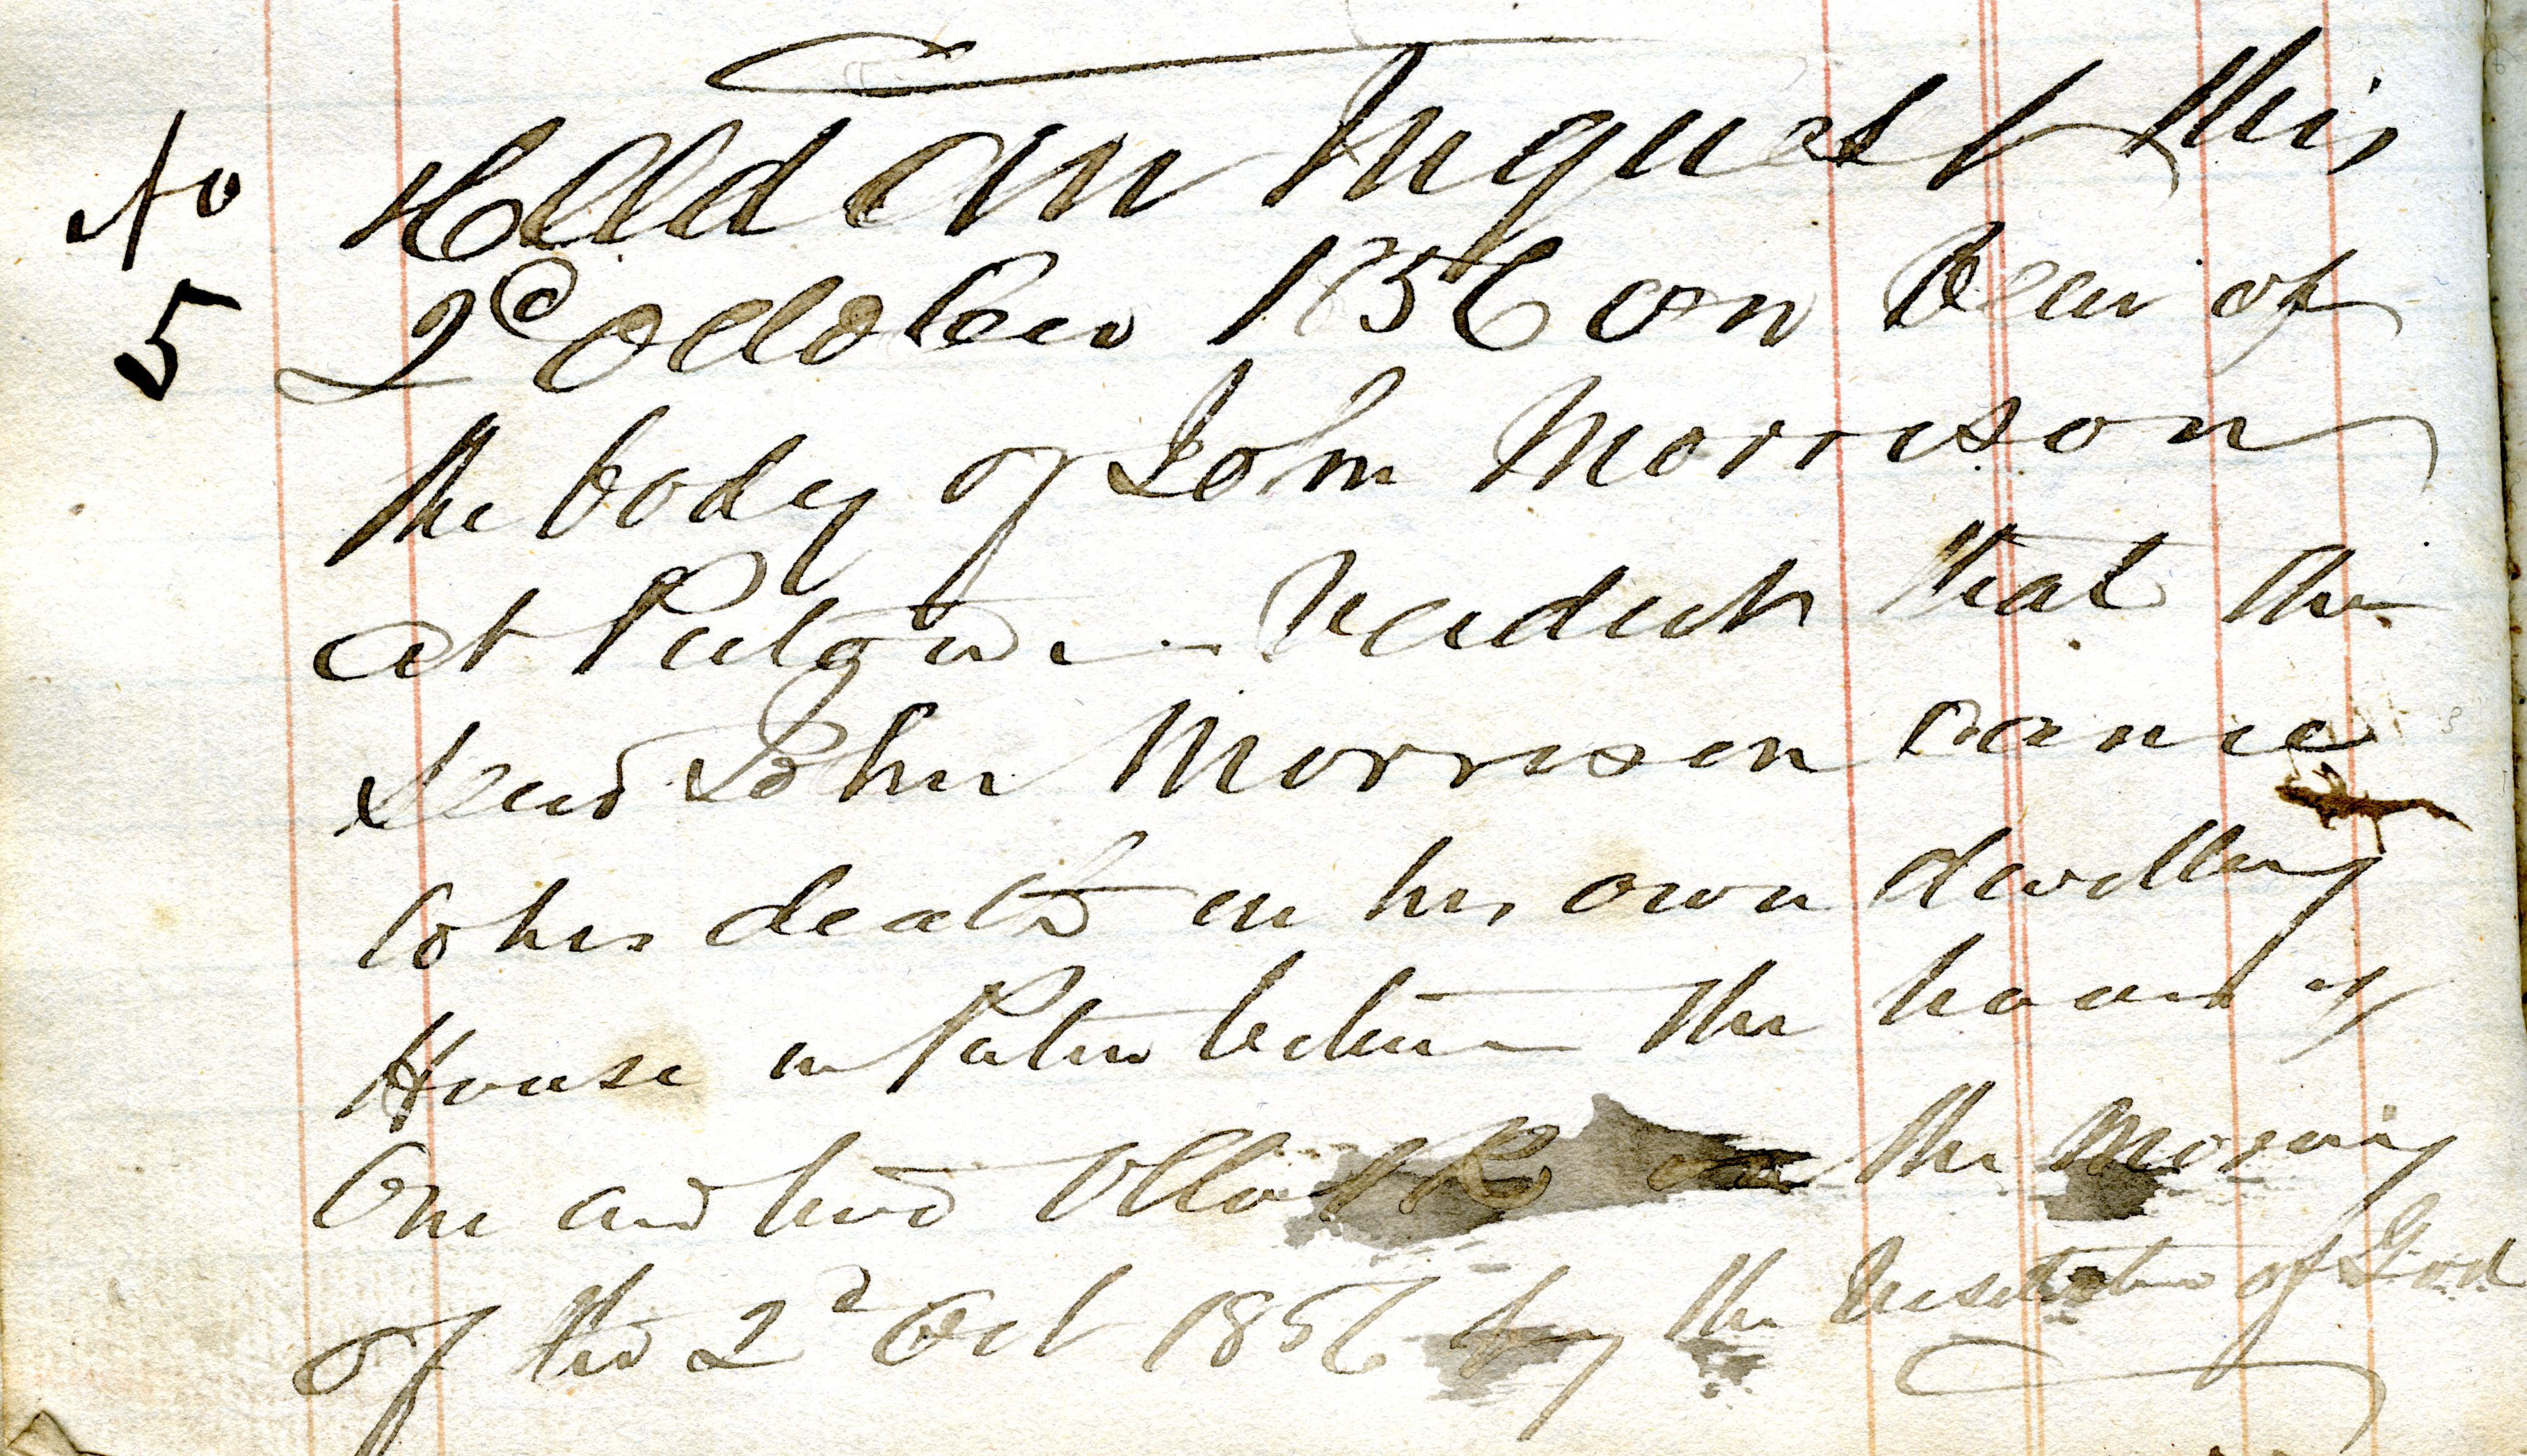 No Held an Inquest this
5 2d October 1856 on view of
the body of John Morrison
at Verdict that the
said John Morrison came
to his death in his own dwelling
House in between the hours of
One and two Oclock in the Morning
of the 2d Oct 1856 by the Visitation of God